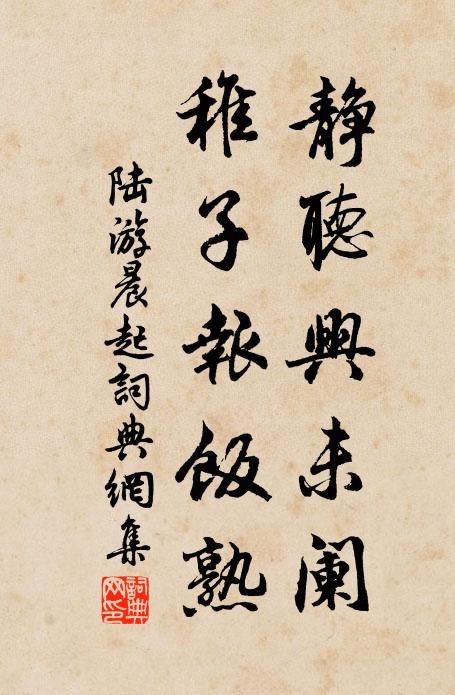 静聽興未闌
稚子報飯熟
陆游晨起詞典網集
詞典網印